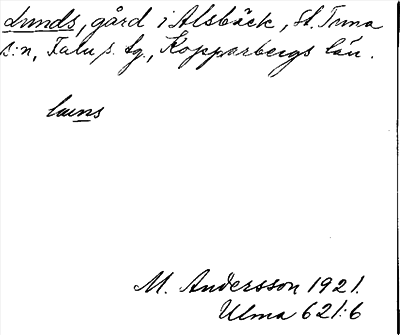 Lunds, gård i Alsbäck, St. Tuna
s:n, Falu s. tg., Kopparbergs län.
luns
M. Andersson 1921.
Ulma 621:6